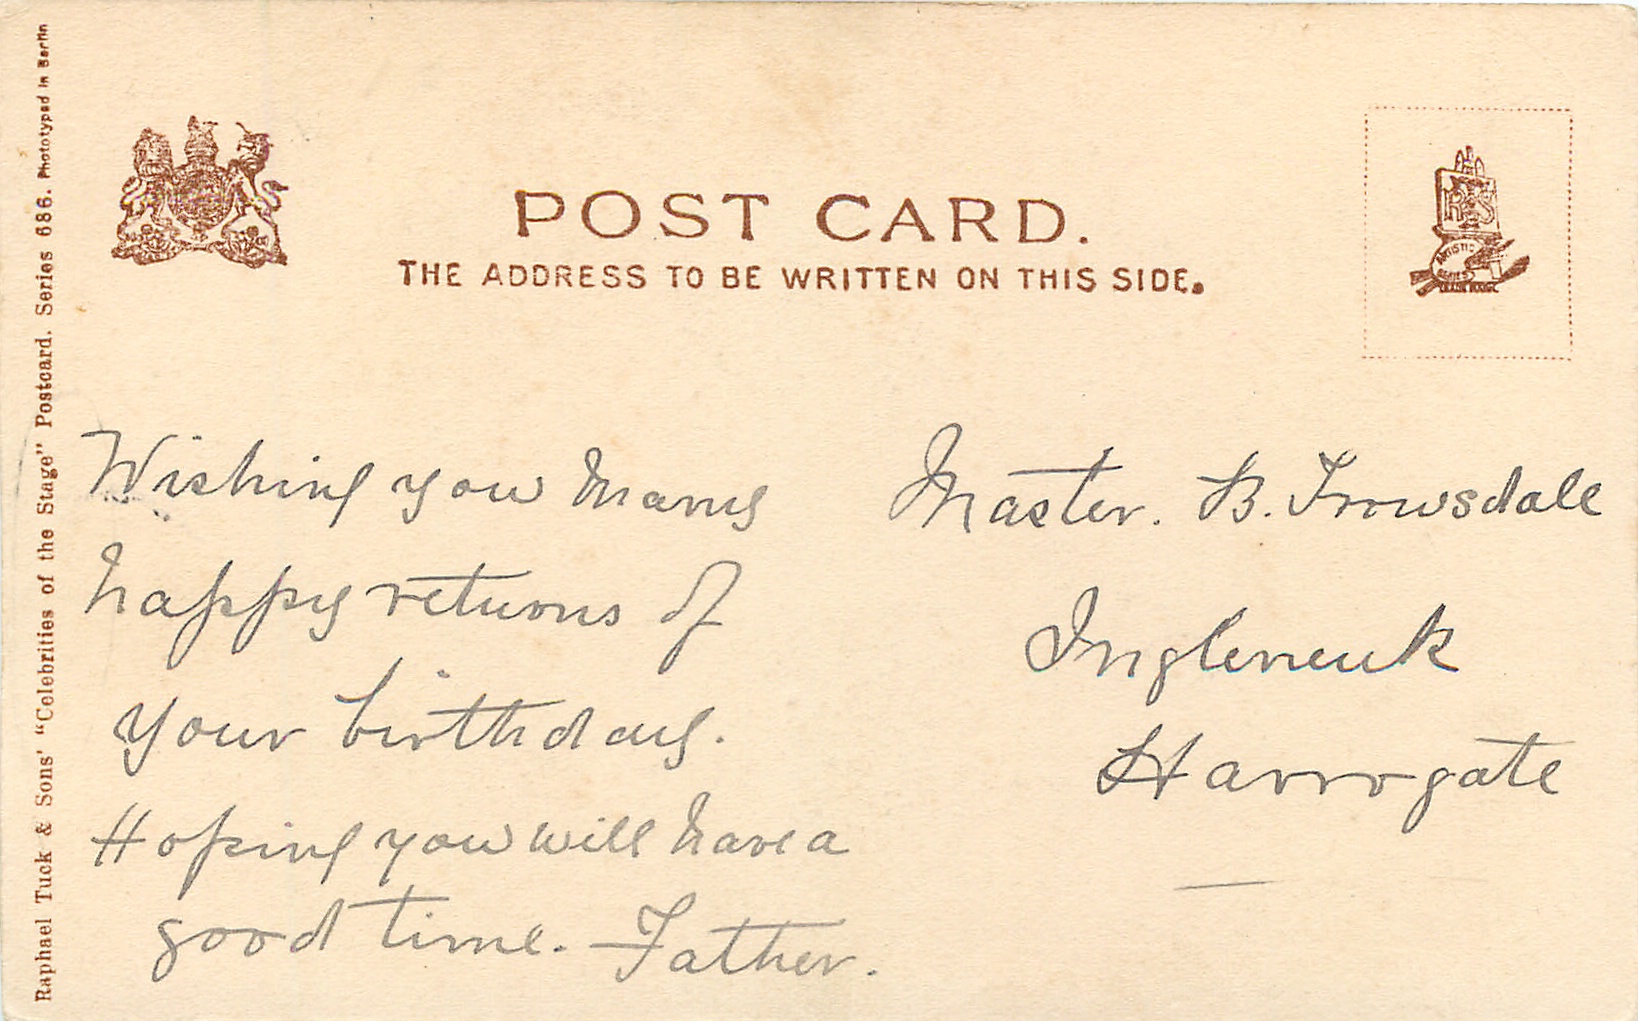 POST CARD.
THE ADDRESS TO BE WRITTEN ON THIS SIDE.
Raphael Tuck & Sons' "Celebrities of the Stage" Postcard. Series 686. Phototyped in Berlin
RTS
ARTISTIC
SERIES
Wishing you many
happy returns of
your birthday.
Hoping you will have a
good time. – Father.
Master. B. Trowsdale
Ingleneuk
Harrogate